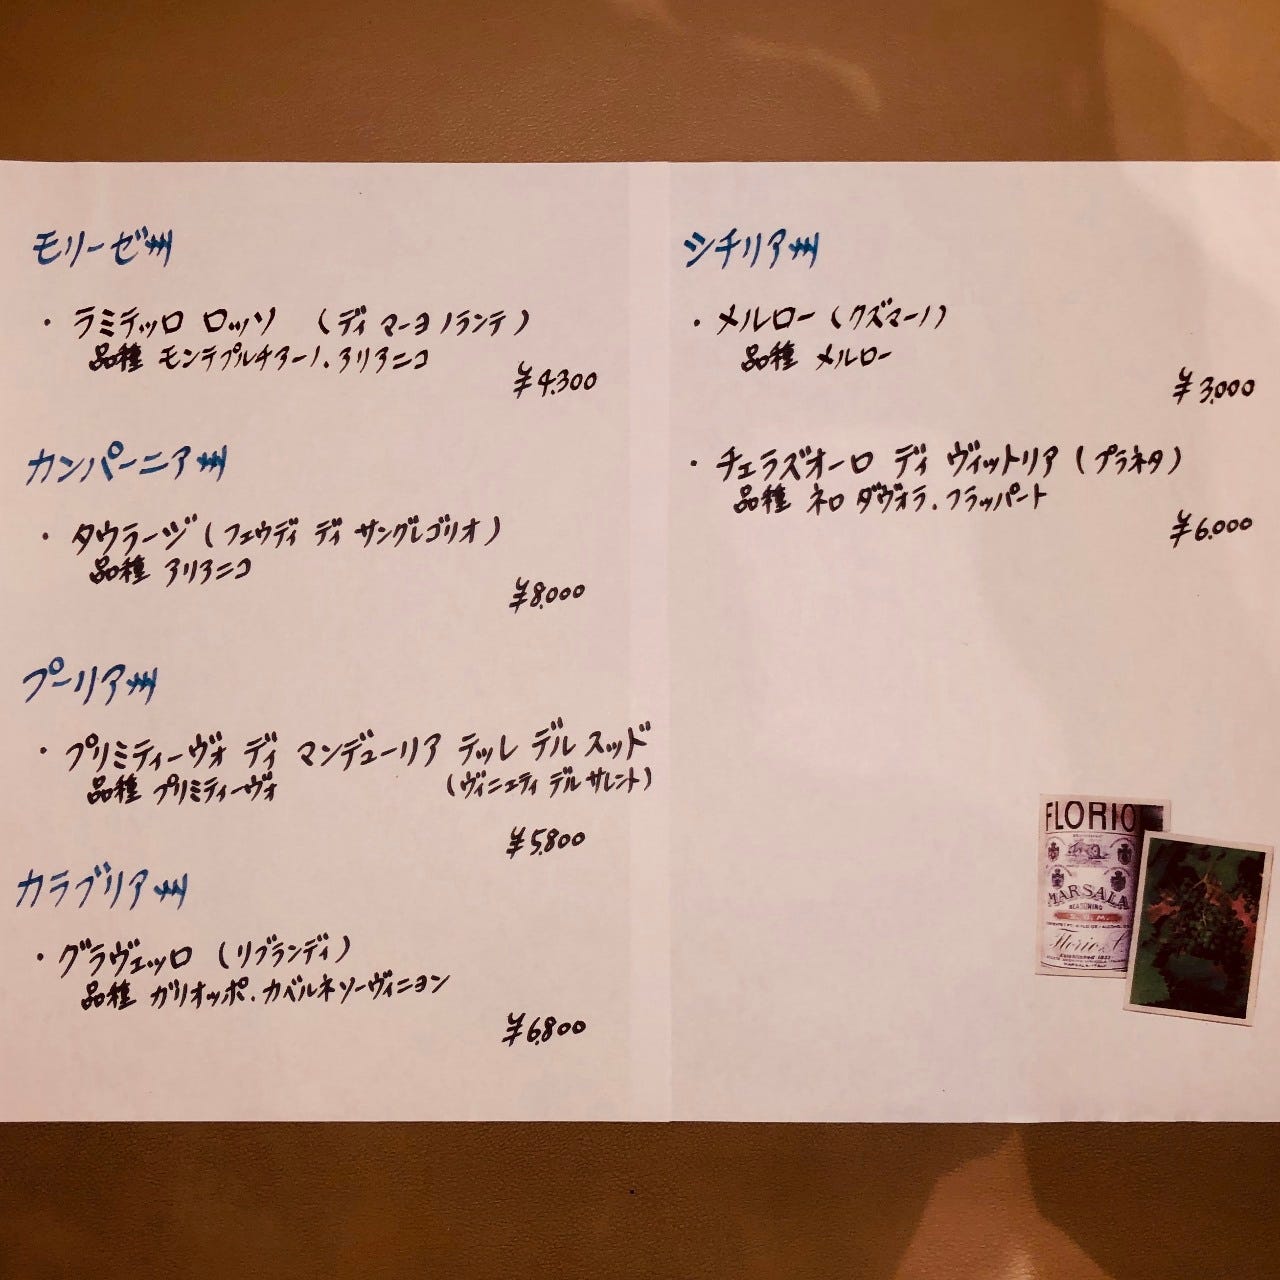 モリーゼ州
・ラミテッロ ロッソ （ディ マーヨ ノランテ）
品種 モンテプルチアーノ.アリアニコ
¥4.300
カンパーニア州
・タウラージ（フェウディ ディ サングレゴリオ）
品種 アリアニコ
¥8.000
プーリア州
・プリミティーヴォ ディ マンデューリア テッレ デル スッド
品種 プリミティーヴォ （ヴィニエティ デル サレント）
¥5.800
カラブリア州
・グラヴェッロ （リブランディ）
品種 ガリオッポ.カベルネソーヴィニヨン
¥6.800
シチリア州
・メルロー（クズマーノ）
品種 メルロー
¥3.000
・チェラズオーロ ディ ヴィットリア（プラネタ）
品種 ネロ ダヴォラ.フラッパート
¥6.000
FLORIO
MARSALA